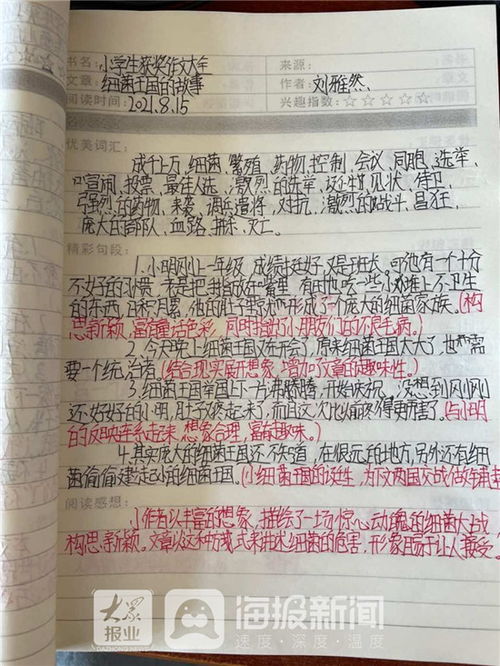 书名：小学生获奖作文大全 来源：
文章：细菌王国的故事 作者：刘雅然
阅读时间：2021.8.15 兴趣指数：☆☆☆☆☆
优美词汇：
成千上万、细菌、繁殖、药物、控制、会议、同胞、选举、
喧闹、投票、最佳人选、激烈的选举、这时、见状、侍卫、
强烈的药物、来袭、调兵遣将、对抗、激烈的战斗、昌狂、
庞大的部队、血路、拼杀、灭亡。
精彩句段：
1.小明刚上一年级，成绩挺好，又是班长，可他有一个十分
不好的习惯，老是把手指放在嘴里，有时也吃一些小摊上不卫生
的东西，日积月累，他的肚子里就形成了一个庞大的细菌家族。(构
思新颖，富有童话色彩，同时指出小朋友们的不良毛病。)
2.今天晚上细菌王国又在开会了，原来细菌王国太大了，也需
要一个统治者(结合现实展开想象，增加文章的趣味性。)
3.细菌王国举国上下一片沸腾，开始庆祝，没想到刚刚
还好好的小明，肚子又疼起来了，而且这次比前疼得更厉害了。(与小明
的反映连系起来，想象合理，富有趣味。)
4.其实庞大的细菌王国还不知道，在很远的地方，另外还有细
菌偷偷建起小的细菌王国。(小细菌王国的诞生，为下文两国交战做铺垫
阅读感想：
小作者以丰富的想象，描绘了一场惊心动魄的细菌大战
构思新颖。文章以这种方式来讲述细菌的危害，形象且易于让人接受。
大众报业 海报新闻
DAZHONG NEWS 速度·深度·温度